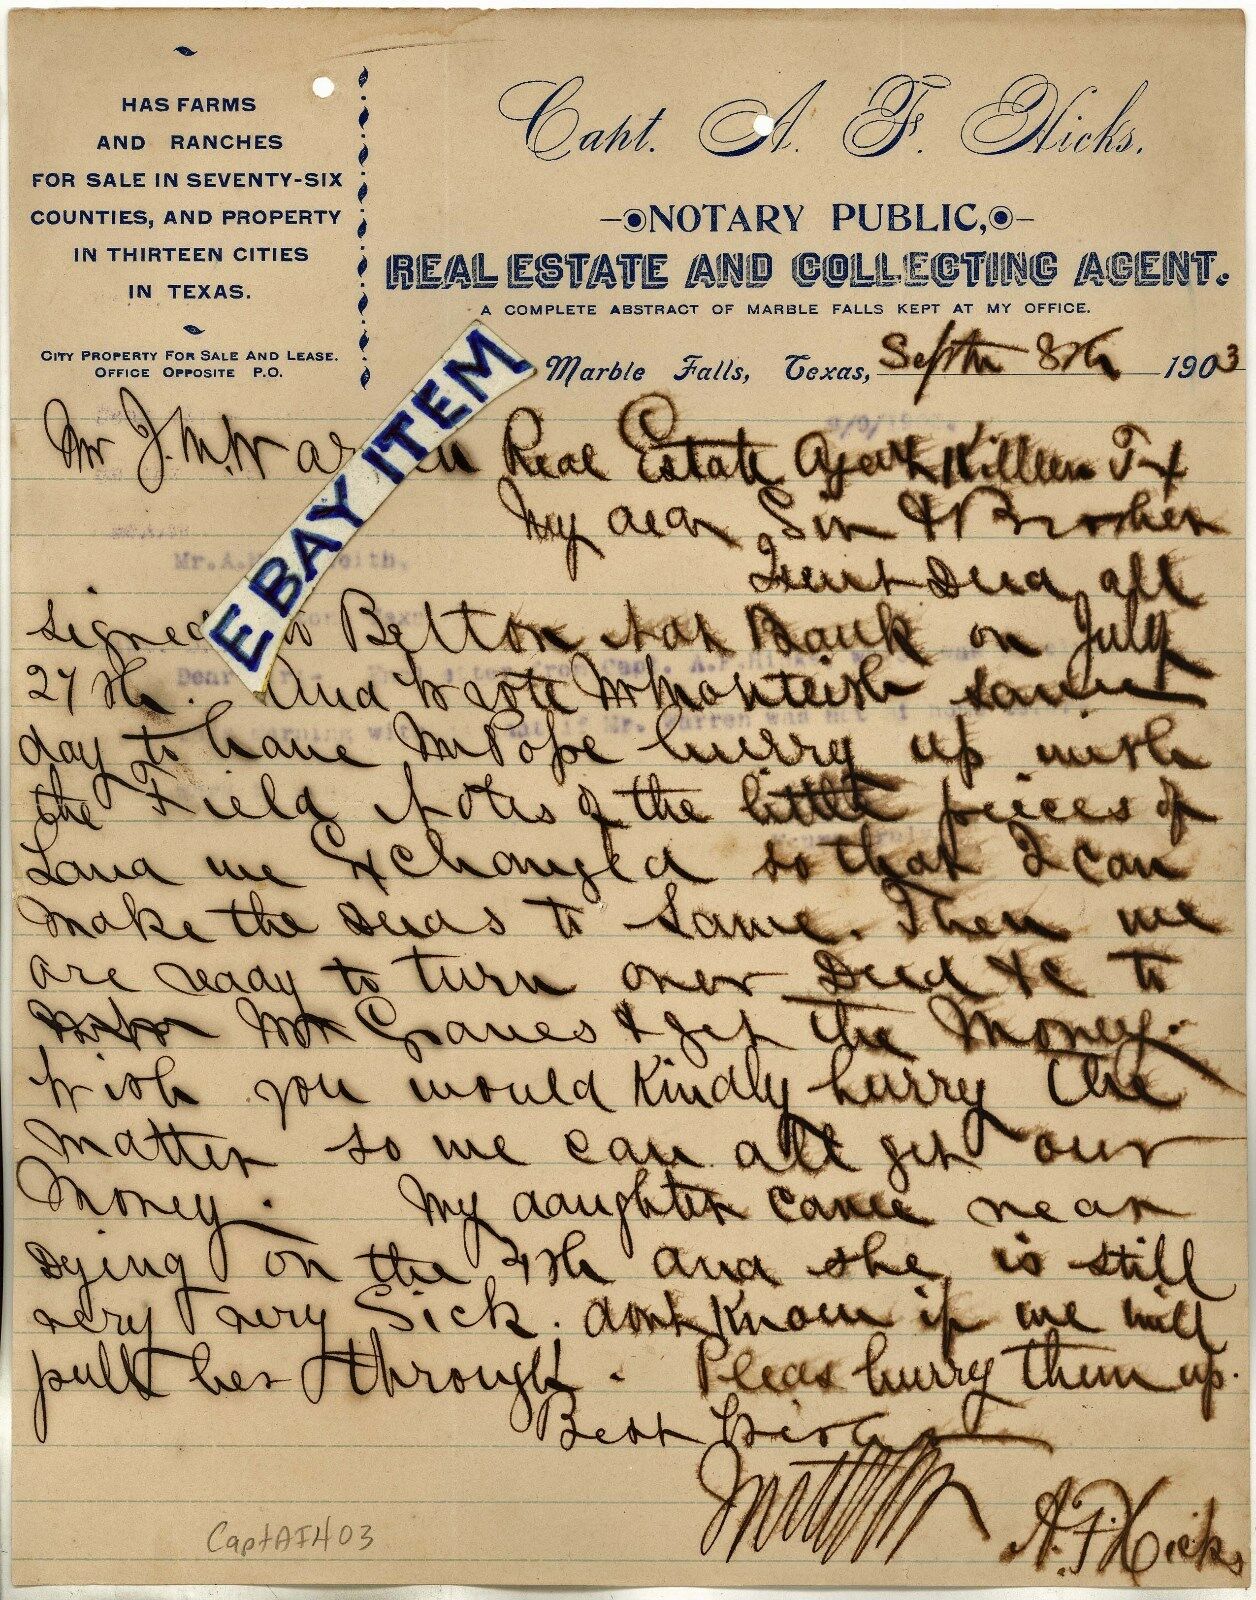 HAS FARMS
AND RANCHES
FOR SALE IN SEVENTY-SIX
COUNTIES, AND PROPERTY
IN THIRTEEN CITIES
IN TEXAS.
CITY PROPERTY FOR SALE AND LEASE.
OFFICE OPPOSITE P.O.
Capt. A. F. Hicks.
NOTARY PUBLIC,
REAL ESTATE AND COLLECTING AGENT.
A COMPLETE ABSTRACT OF MARBLE FALLS KEPT AT MY OFFICE.
Marble Falls, Texas, Septm 8th 1903
EBAY ITEM
Mr J. M. Warren Real Estate Agent Killeen Tx
My dear Sir & Brother
I sent Deed all
signed to Belton Nat Bank on July
27th. And wrote Mr Monteith same
day to have Mr Pope hurry up with
the Field Notes of the little pieces of
Land we Exchanged so that I can
make the deeds to same. Then we
are ready to turn over Deed &c to
Mr Graves & get the Money.
Wish you would Kindly hurry the
matter so we can all get our
Money. My daughter came near
dying on the 4th and she is still
very very Sick. dont Know if we will
pull her through. Pleas hurry them up.
Best Wishes
A. F. Hicks
CaptAF403